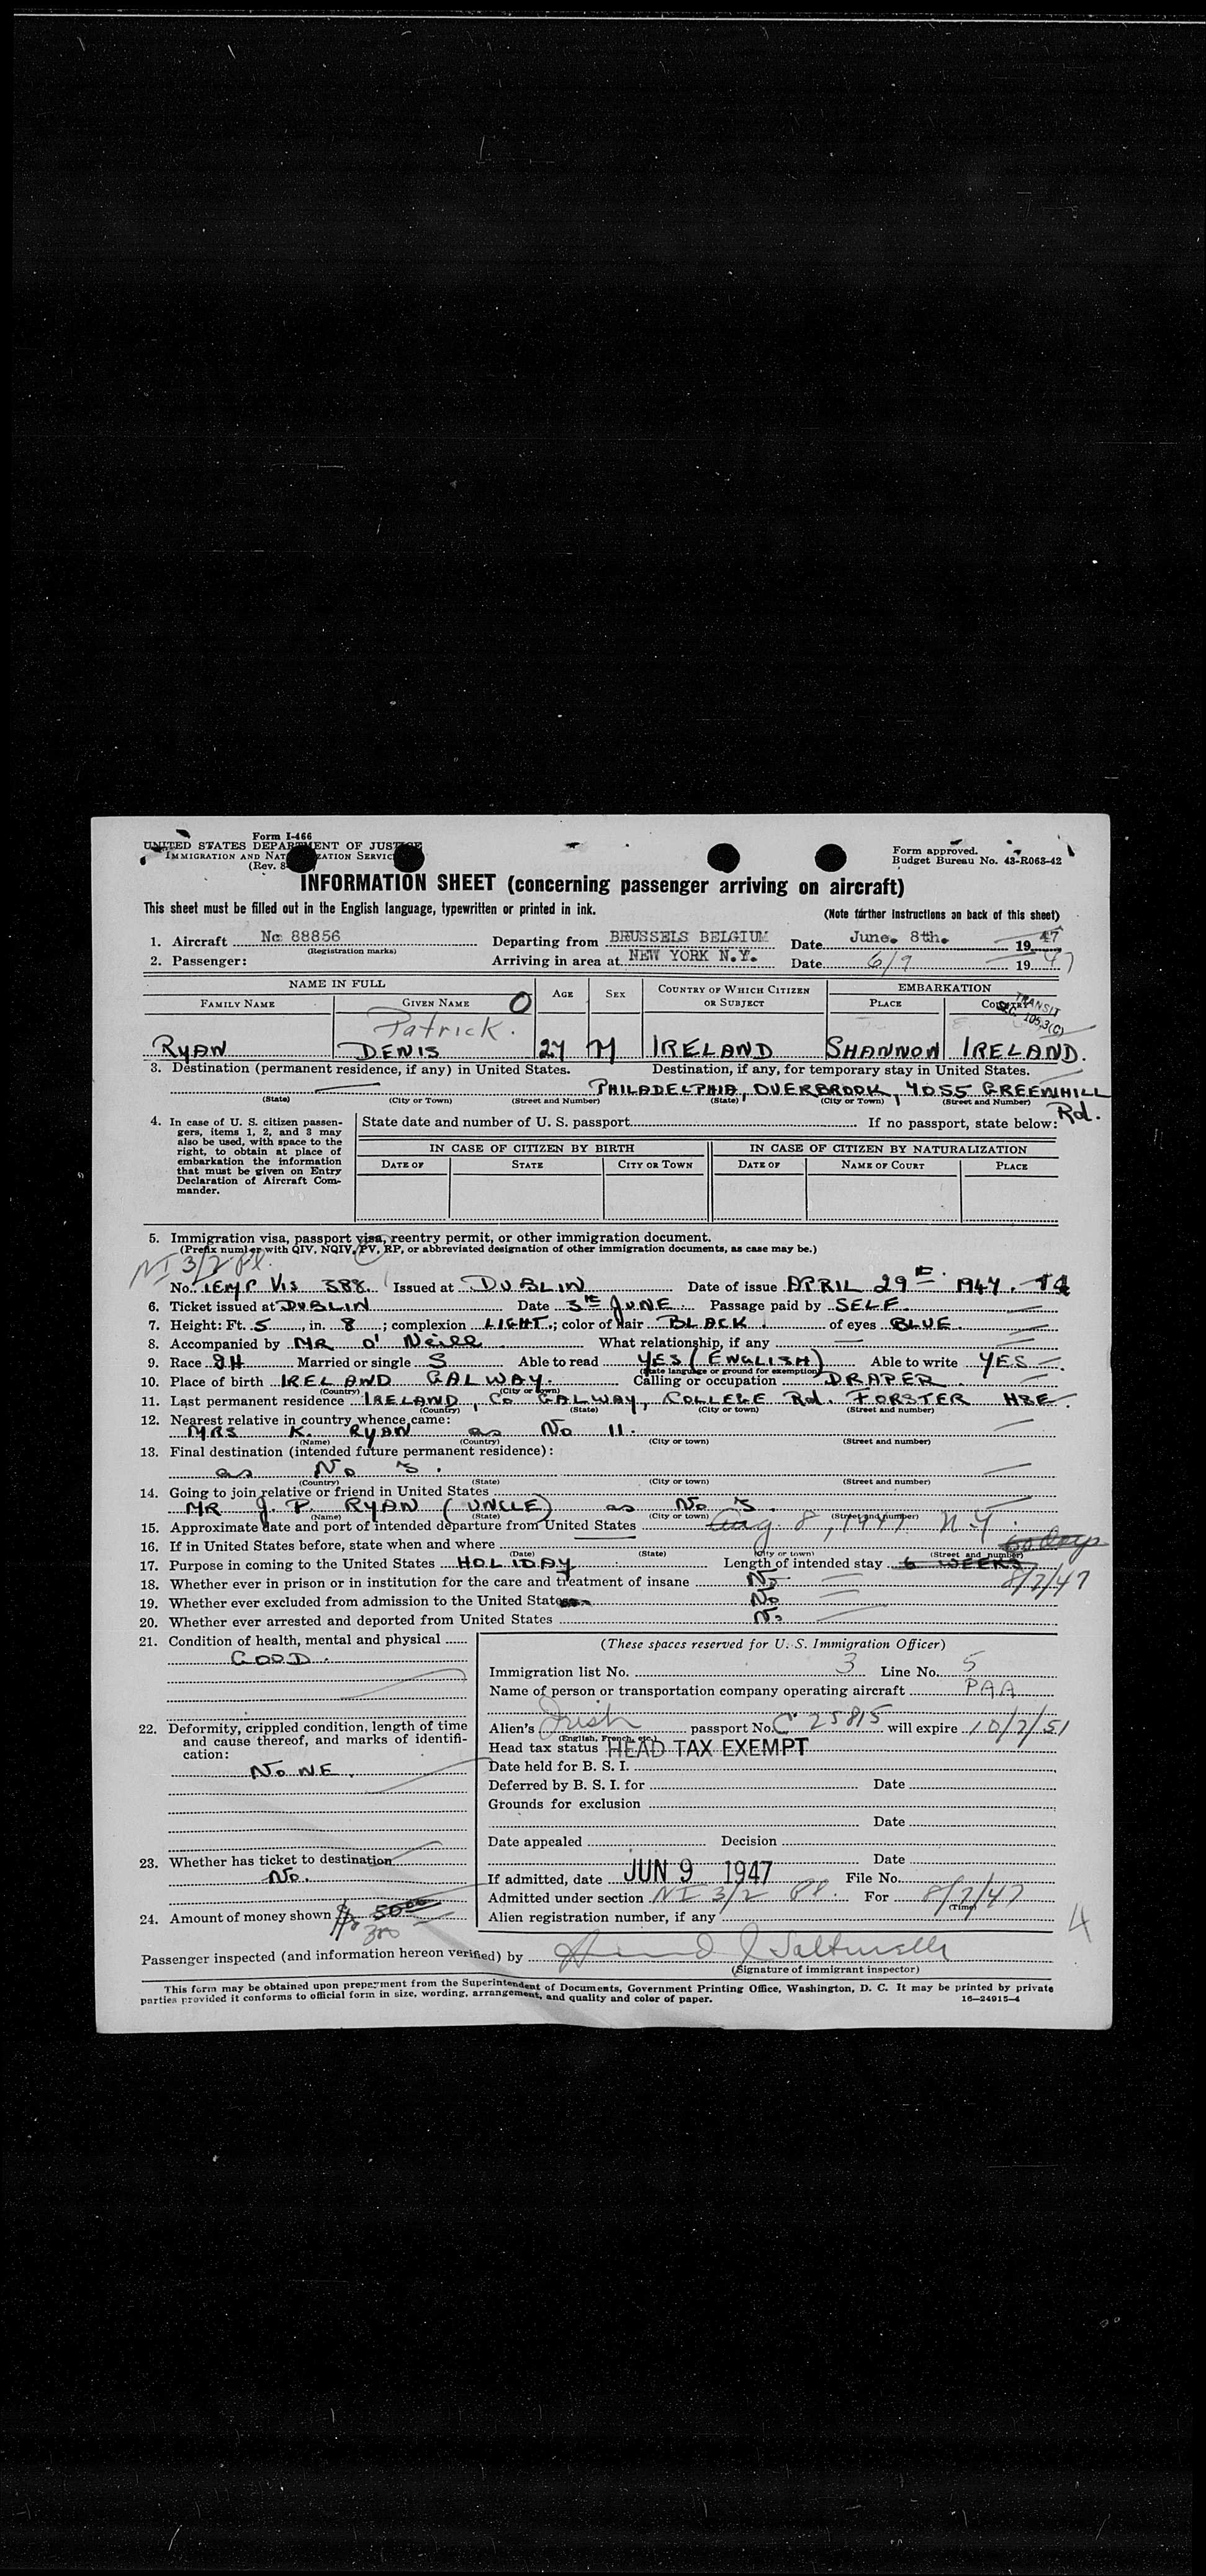 Form I-466
UNITED STATES DEPARTMENT OF JUSTICE
IMMIGRATION AND NATURALIZATION SERVICE
(Rev. 8-
Form approved.
Budget Bureau No. 43-R063-42
INFORMATION SHEET (concerning passenger arriving on aircraft)
This sheet must be filled out in the English language, typewritten or printed in ink.
(Note further instructions on back of this sheet)
1. Aircraft Nc 88856 Departing from BRUSSELS BELGIUM Date June. 8th. 1947
(Registration marks)
2. Passenger: Arriving in area at NEW YORK N.Y. Date 6/9 1947
NAME IN FULL AGE SEX COUNTRY OF WHICH CITIZEN OR SUBJECT EMBARKATION
FAMILY NAME GIVEN NAME O PLACE COUNTRY
TRANSIT
SEC. 105,3(C)
Patrick.
RYAN DENIS 27 M IRELAND SHANNON IRELAND.
3. Destination (permanent residence, if any) in United States. Destination, if any, for temporary stay in United States.
PHILADELPHIA, OVERBROOK, 4055 GREENHILL Rd.
(State) (City or Town) (Street and Number) (State) (City or Town) (Street and Number)
4. In case of U. S. citizen passengers, items 1, 2, and 3 may also be used, with space to the right, to obtain at place of embarkation the information that must be given on Entry Declaration of Aircraft Commander.
State date and number of U. S. passport If no passport, state below:
IN CASE OF CITIZEN BY BIRTH IN CASE OF CITIZEN BY NATURALIZATION
DATE OF STATE CITY OR TOWN DATE OF NAME OF COURT PLACE
5. Immigration visa, passport visa, reentry permit, or other immigration document.
(Prefix number with QIV, NQIV, PV, RP, or abbreviated designation of other immigration documents, as case may be.)
NI 3/2 Pl.
No. TEMP VIS 388. Issued at DUBLIN Date of issue APRIL 29th 1947.
6. Ticket issued at DUBLIN Date 3rd JUNE Passage paid by SELF.
7. Height: Ft. 5, in. 8; complexion LIGHT; color of hair BLACK of eyes BLUE.
8. Accompanied by MR O'Neill What relationship, if any —
9. Race IH Married or single S Able to read YES (ENGLISH) Able to write YES
(State language or ground for exemption)
10. Place of birth IRELAND GALWAY. Calling or occupation DRAPER
(Country) (City or town)
11. Last permanent residence IRELAND, Co GALWAY, COLLEGE Rd. FORSTER HSE.
(Country) (State) (City or town) (Street and number)
12. Nearest relative in country whence came:
MRS K. RYAN as No 11.
(Name) (Country) (City or town) (Street and number)
13. Final destination (intended future permanent residence):
as No 3.
(Country) (State) (City or town) (Street and number)
14. Going to join relative or friend in United States
MR J. P. RYAN (UNCLE) as No 3.
(Name) (State) (City or town) (Street and number)
15. Approximate date and port of intended departure from United States Aug 8, 1947 NY.
16. If in United States before, state when and where
(Date) (State) (City or town) (Street and number)
60 days
17. Purpose in coming to the United States HOLIDAY Length of intended stay 6 WEEKS
8/7/47
18. Whether ever in prison or in institution for the care and treatment of insane No
19. Whether ever excluded from admission to the United States No
20. Whether ever arrested and deported from United States No
21. Condition of health, mental and physical
GOOD.
22. Deformity, crippled condition, length of time and cause thereof, and marks of identification:
NONE.
23. Whether has ticket to destination
No.
24. Amount of money shown $ 50 00
300
(These spaces reserved for U. S. Immigration Officer)
Immigration list No. 3 Line No. 5
Name of person or transportation company operating aircraft PAA
Alien's Irish passport No. C 25815 will expire 10/2/51
(English, French, etc.)
Head tax status HEAD TAX EXEMPT
Date held for B. S. I.
Deferred by B. S. I. for Date
Grounds for exclusion
Date
Date appealed Decision
Date
If admitted, date JUN 9 1947 File No.
Admitted under section NI 3/2 Pl. For 8/7/47
(Time)
Alien registration number, if any
4
Passenger inspected (and information hereon verified) by
(Signature of immigrant inspector)
This form may be obtained upon prepayment from the Superintendent of Documents, Government Printing Office, Washington, D. C. It may be printed by private
parties provided it conforms to official form in size, wording, arrangement, and quality and color of paper.
16—24915-4